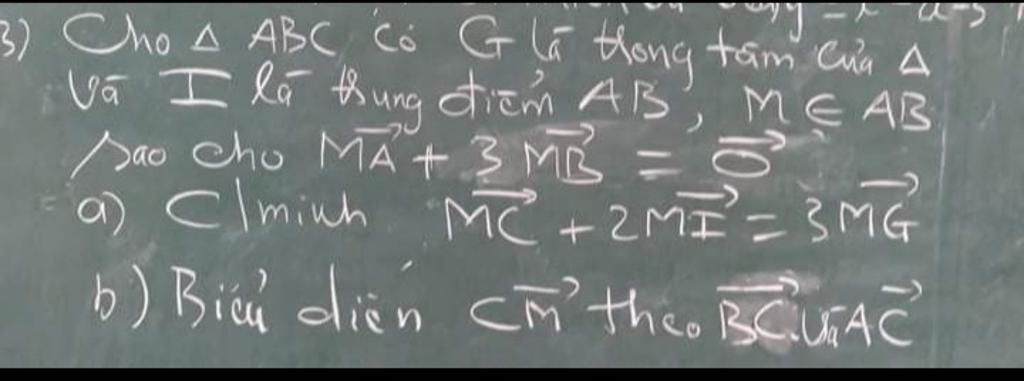 3) Cho Δ ABC có G là trọng tâm của Δ
và I là trung điểm AB, M ∈ AB
sao cho \overrightarrow{MA} + 3\overrightarrow{MB} = \overrightarrow{0}
a) C/minh \overrightarrow{MC} + 2\overrightarrow{MI} = 3\overrightarrow{MG}
b) Biểu diễn \overrightarrow{CM} theo \overrightarrow{BC} và \overrightarrow{AC}